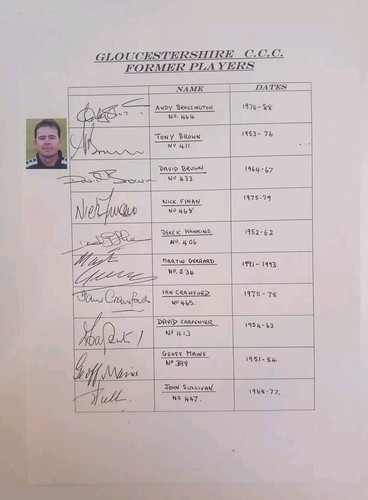 GLOUCESTERSHIRE C.C.C.
FORMER PLAYERS
NAME DATES
ANDY BRASSINGTON 1974-88
No. 444
A Brown TONY BROWN 1953-76
No 411
David Brown DAVID BROWN 1964-67
No 433
Nick Finan NICK FINAN 1975-79
No 468
DEREK HAWKINS 1952-62
No. 406
Martin Gerrard MARTIN GERRARD 1991-1993
No. 534
Ian Crawford IAN CRAWFORD 1975-78
No 465.
DAVID CARPENTER 1954-63
No 413
Geoff Mains GEOFF MAINS 1951-54
No 399
JOHN SULLIVAN 1968-77.
No 447.